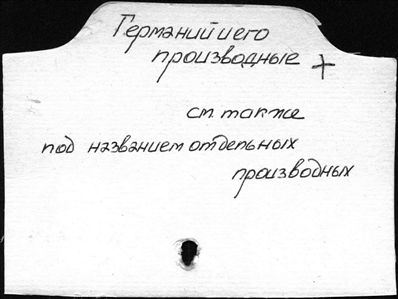 Германий и его
производные +
см также
под названием отдельных
производных